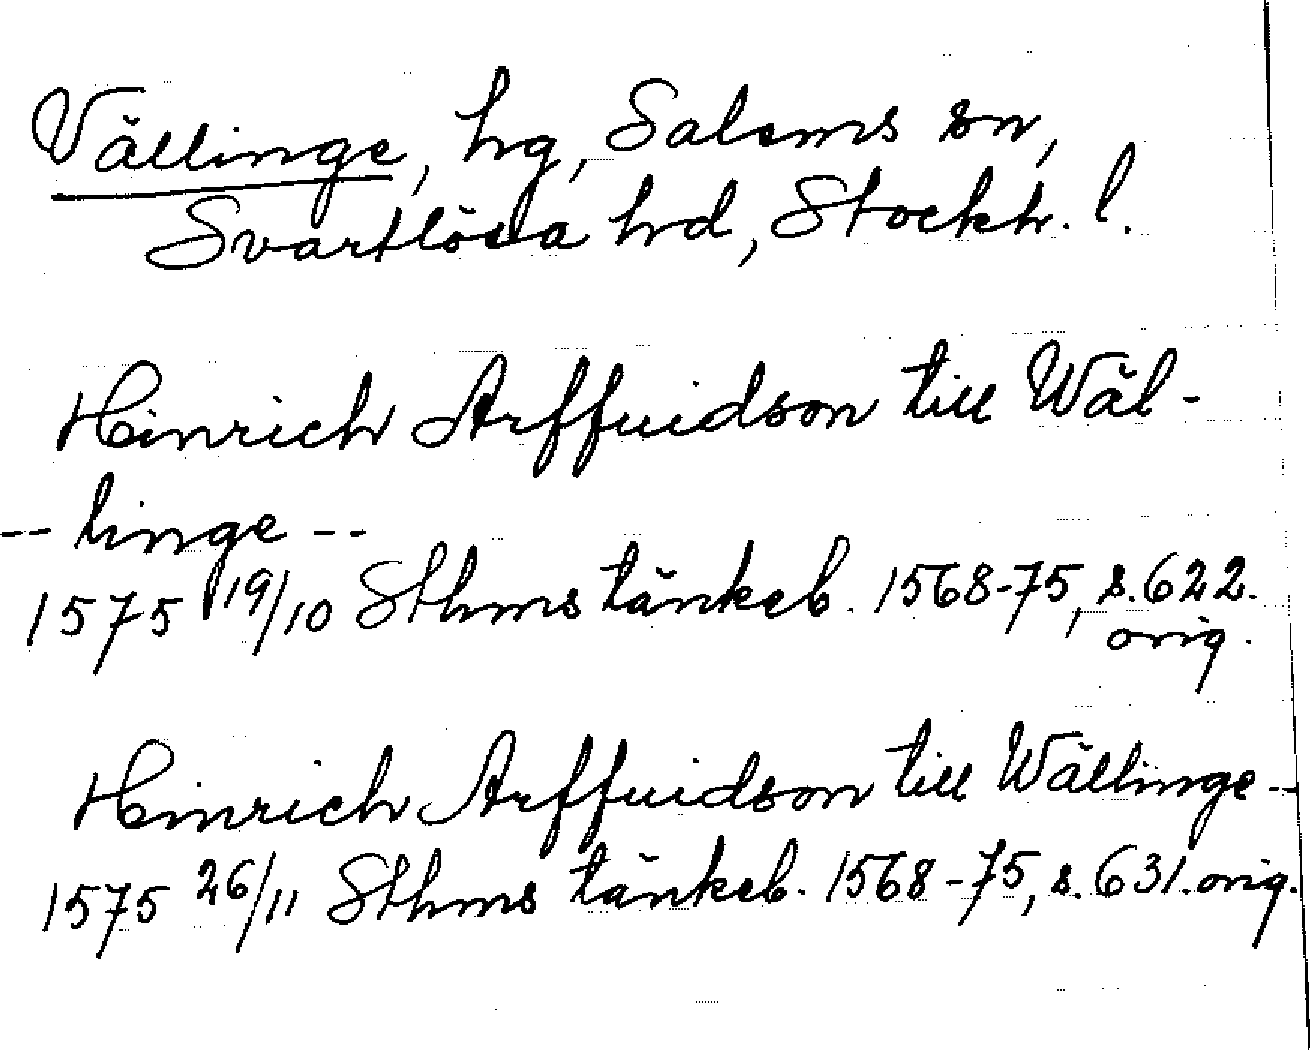 Vällinge, hg, Salems sn,
Svartlösa hrd, Stockh. l.
Hinrich Arffuidson till Wäl-
-- linge --
1575 19/10 Sthms tänkeb. 1568-75, s. 622.
orig.
Hinrich Arffuidson till Wällinge --
1575 26/11 Sthms tänkeb. 1568-75, s. 631. orig.